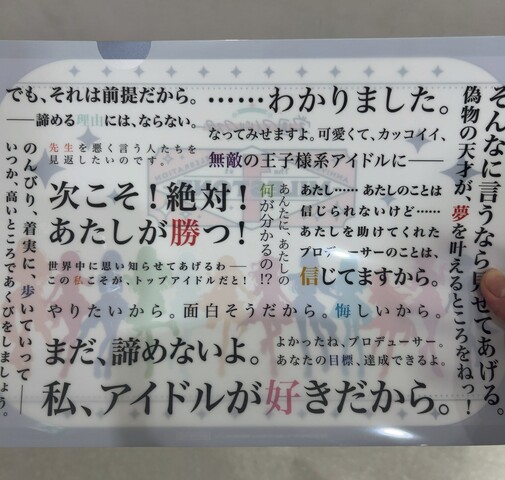 そんなに言うなら見せてあげる。
偽物の天才が、夢を叶えるところをねっ！
でも、それは前提だから。
――諦める理由には、ならない。
……わかりました。
なってみせますよ。可愛くて、カッコイイ、
無敵の王子様系アイドルに――
先生を悪く言う人たちを
見返したいのです。
次こそ！絶対！
あたしが勝つ！
あんたに、あたしの
何が分かるの!?
あたし……あたしのことは
信じられないけど……
あたしを助けてくれた
プロデューサーのことは、
信じてますから。
世界中に思い知らせてあげるわ――
この私こそが、トップアイドルだと！
のんびり、着実に、歩いていって――
いつか、高いところであくびをしましょう。
やりたいから。面白そうだから。悔しいから。
まだ、諦めないよ。
よかったね、プロデューサー。
あなたの目標、達成できるよ。
私、アイドルが好きだから。